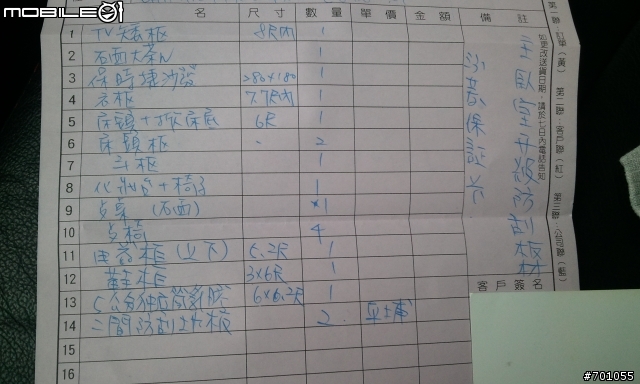 MOBILE01
名 尺寸 數量 單價 金額 備註
1 TV矮柜 8尺內 1
2 石面大茶几 1
3 保時捷沙發 280×180 1
4 衣柜 7.7尺內 1
5 床頭+掀床底 6尺 1
6 床頭柜 2
7 斗柜 1
8 化妝台+椅子 1
9 餐桌(石面) 1
10 餐椅 4
11 (上下) 1
12 鞋柜 3×6尺 1
13 6×6.2尺 1
14 2
15
16
沙發保証
主臥室升級防刮板材
如更改送貨日期,請於七日內電話告知
第一聯:訂單(黃) 第二聯:客戶聯(紅) 第三聯:公司聯(藍)
客戶簽名
#701055